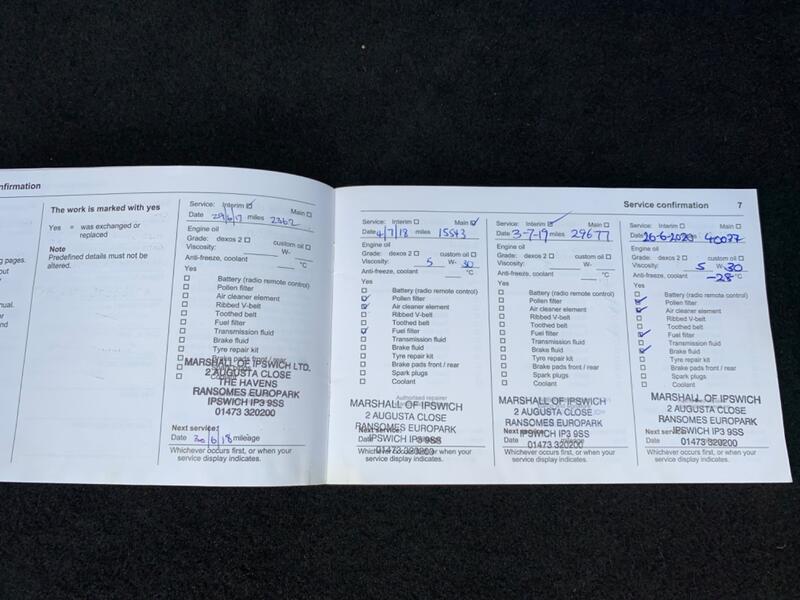 nfirmation
g pages.
out
nual.
or
nd
The work is marked with yes
Yes = was exchanged or
replaced
Note
Predefined details must not be
altered.
Service: Interim ☑ Main ☐
Date 29/6/17 miles 2362
Engine oil
Grade: dexos 2 ☐ custom oil ☐
Viscosity: W-
Anti-freeze, coolant °C
Yes
☐ Battery (radio remote control)
☐ Pollen filter
☐ Air cleaner element
☐ Ribbed V-belt
☐ Toothed belt
☐ Fuel filter
☐ Transmission fluid
☐ Brake fluid
☐ Tyre repair kit
☐ Brake pads front / rear
MARSHALL OF IPSWICH LTD.
2 AUGUSTA CLOSE
THE HAVENS
RANSOMES EUROPARK
IPSWICH IP3 9SS
01473 320200
Next service:
Date 30/6/18 mileage
Whichever occurs first, or when your
service display indicates.
Service confirmation 7
Service: Interim ☐ Main ☑
Date 4/7/18 miles 15543
Engine oil
Grade: dexos 2 ☐ custom oil ☐
Viscosity: 5 W- 30
Anti-freeze, coolant °C
Yes
☐ Battery (radio remote control)
☑ Pollen filter
☑ Air cleaner element
☐ Ribbed V-belt
☐ Toothed belt
☑ Fuel filter
☐ Transmission fluid
☐ Brake fluid
☐ Tyre repair kit
☐ Brake pads front / rear
☐ Spark plugs
☐ Coolant
Authorised repairer
MARSHALL OF IPSWICH
2 AUGUSTA CLOSE
RANSOMES EUROPARK
Next service:
IPSWICH IP3 9SS
Date
01473 320200
Whichever occurs first, or when your
service display indicates.
Service: Interim ☑ Main ☐
Date 3-7-19 miles 29677
Engine oil
Grade: dexos 2 ☐ custom oil ☐
Viscosity: W-
Anti-freeze, coolant °C
Yes
☐ Battery (radio remote control)
☐ Pollen filter
☐ Air cleaner element
☐ Ribbed V-belt
☐ Toothed belt
☐ Fuel filter
☐ Transmission fluid
☐ Brake fluid
☐ Tyre repair kit
☐ Brake pads front / rear
☐ Spark plugs
☐ Coolant
MARSHALL OF IPSWICH
2 AUGUSTA CLOSE
RANSOMES EUROPARK
Next service:
IPSWICH IP3 9SS
Date
01473 320200
Whichever occurs first, or when your
service display indicates.
Service: Interim ☐ Main ☐
Date 26-6-2020 40037
Engine oil
Grade: dexos 2 ☐ custom oil ☐
Viscosity: 5 W- 30
Anti-freeze, coolant -28 °C
Yes
☐ Battery (radio remote control)
☑ Pollen filter
☑ Air cleaner element
☐ Ribbed V-belt
☐ Toothed belt
☑ Fuel filter
☐ Transmission fluid
☑ Brake fluid
☐ Tyre repair kit
☐ Brake pads front / rear
☐ Spark plugs
☐ Coolant
MARSHALL OF IPSWICH
2 AUGUSTA CLOSE
RANSOMES EUROPARK
Next
IPSWICH IP3 9SS
Date
01473 320200
Whichever occurs first, or when your
service display indicates.